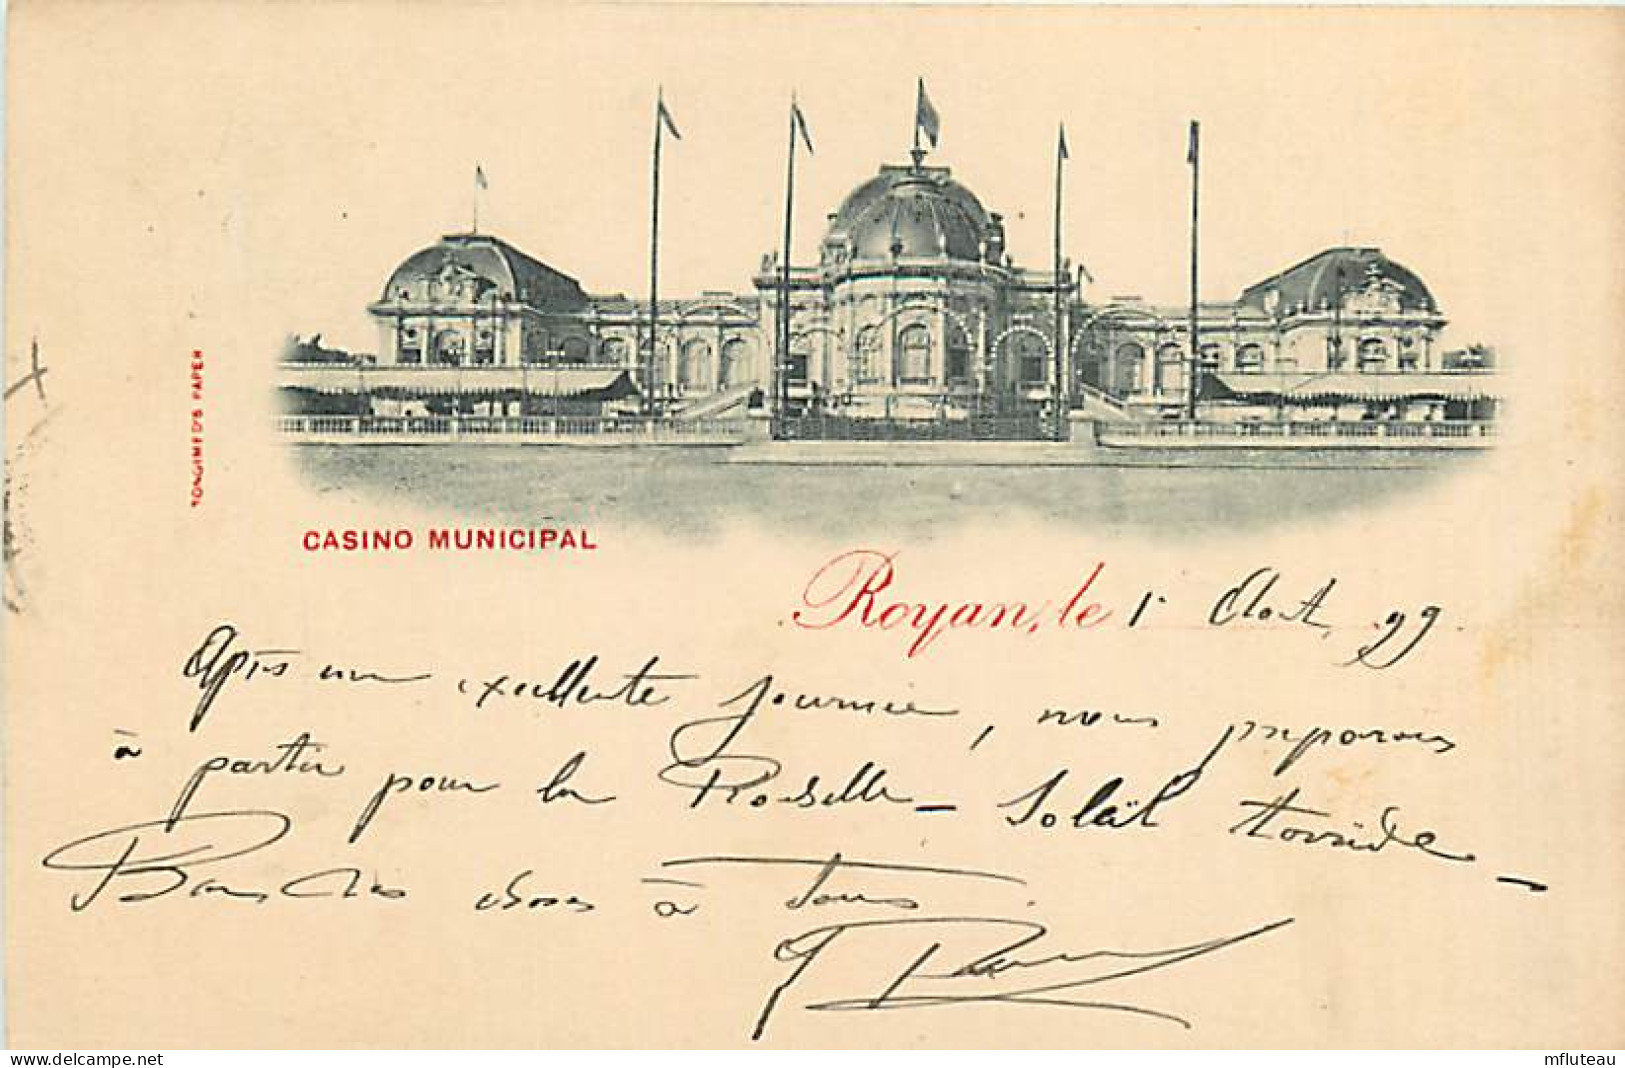 CASINO MUNICIPAL
Royan, le 1r Août 99
Après une excellente journée, nous préparons
à partir pour la Rochelle – Soleil torride –
Bonnes choses à Tous.
www.delcampe.net
mfluteau